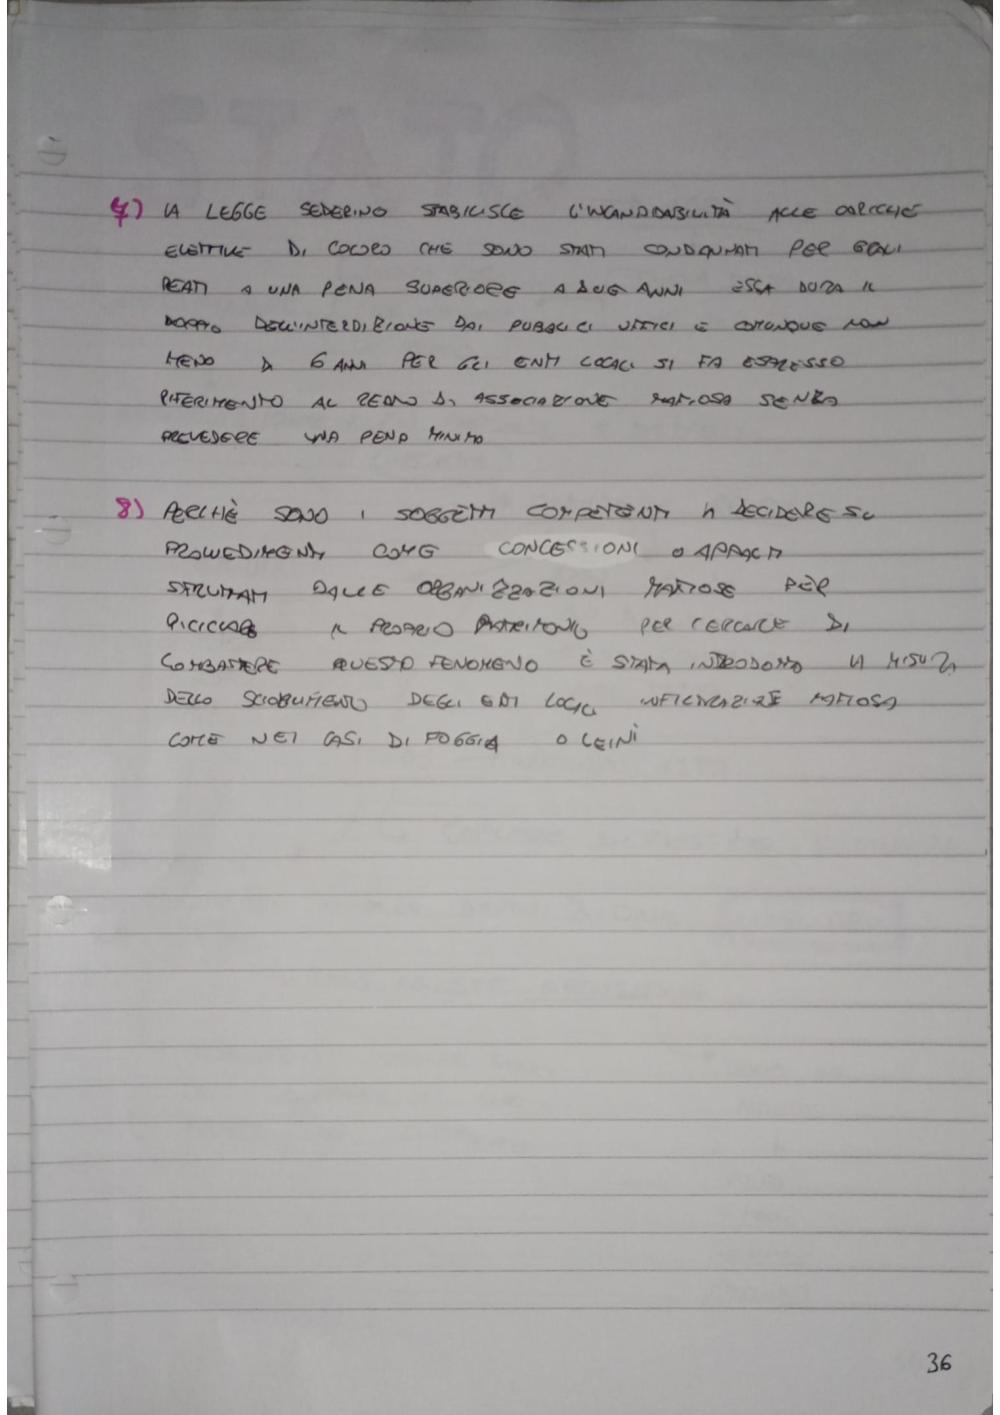 7) LA LEGGE SEDERINO STABILISCE L'INCANDIDABILITÀ ALLE CARICHE
ELETTIVE DI COLORO CHE SONO STATI CONDANNATI PER GRAVI
REATI A UNA PENA SUPERIORE A DUE ANNI ESSA DURA IL
DOPPIO DELL'INTERDIZIONE DAI PUBBLICI UFFICI E COMUNQUE NON
MENO DI 6 ANNI PER GLI ENTI LOCALI SI FA ESPRESSO
RIFERIMENTO AL REATO DI ASSOCIAZIONE MAFIOSA SENZA
PREVEDERE UNA PENA MINIMO
8) PERCHÈ SONO I SOGGETTI COMPETENTI A DECIDERE SU
PROVVEDIMENTI COME CONCESSIONI O APPALTI
SFRUTTATI DALLE ORGANIZZAZIONI MAFIOSE PER
RICICLARE IL PROPRIO PATRIMONIO PER CERCARE DI
COMBATTERE QUESTO FENOMENO È STATA INTRODOTTO LA MISURA
DELLO SCIOGLIMENTO DEGLI ENTI LOCALI INFILTRAZIONE MAFIOSA
COME NEI CASI DI FOGGIA O LEINÌ
36